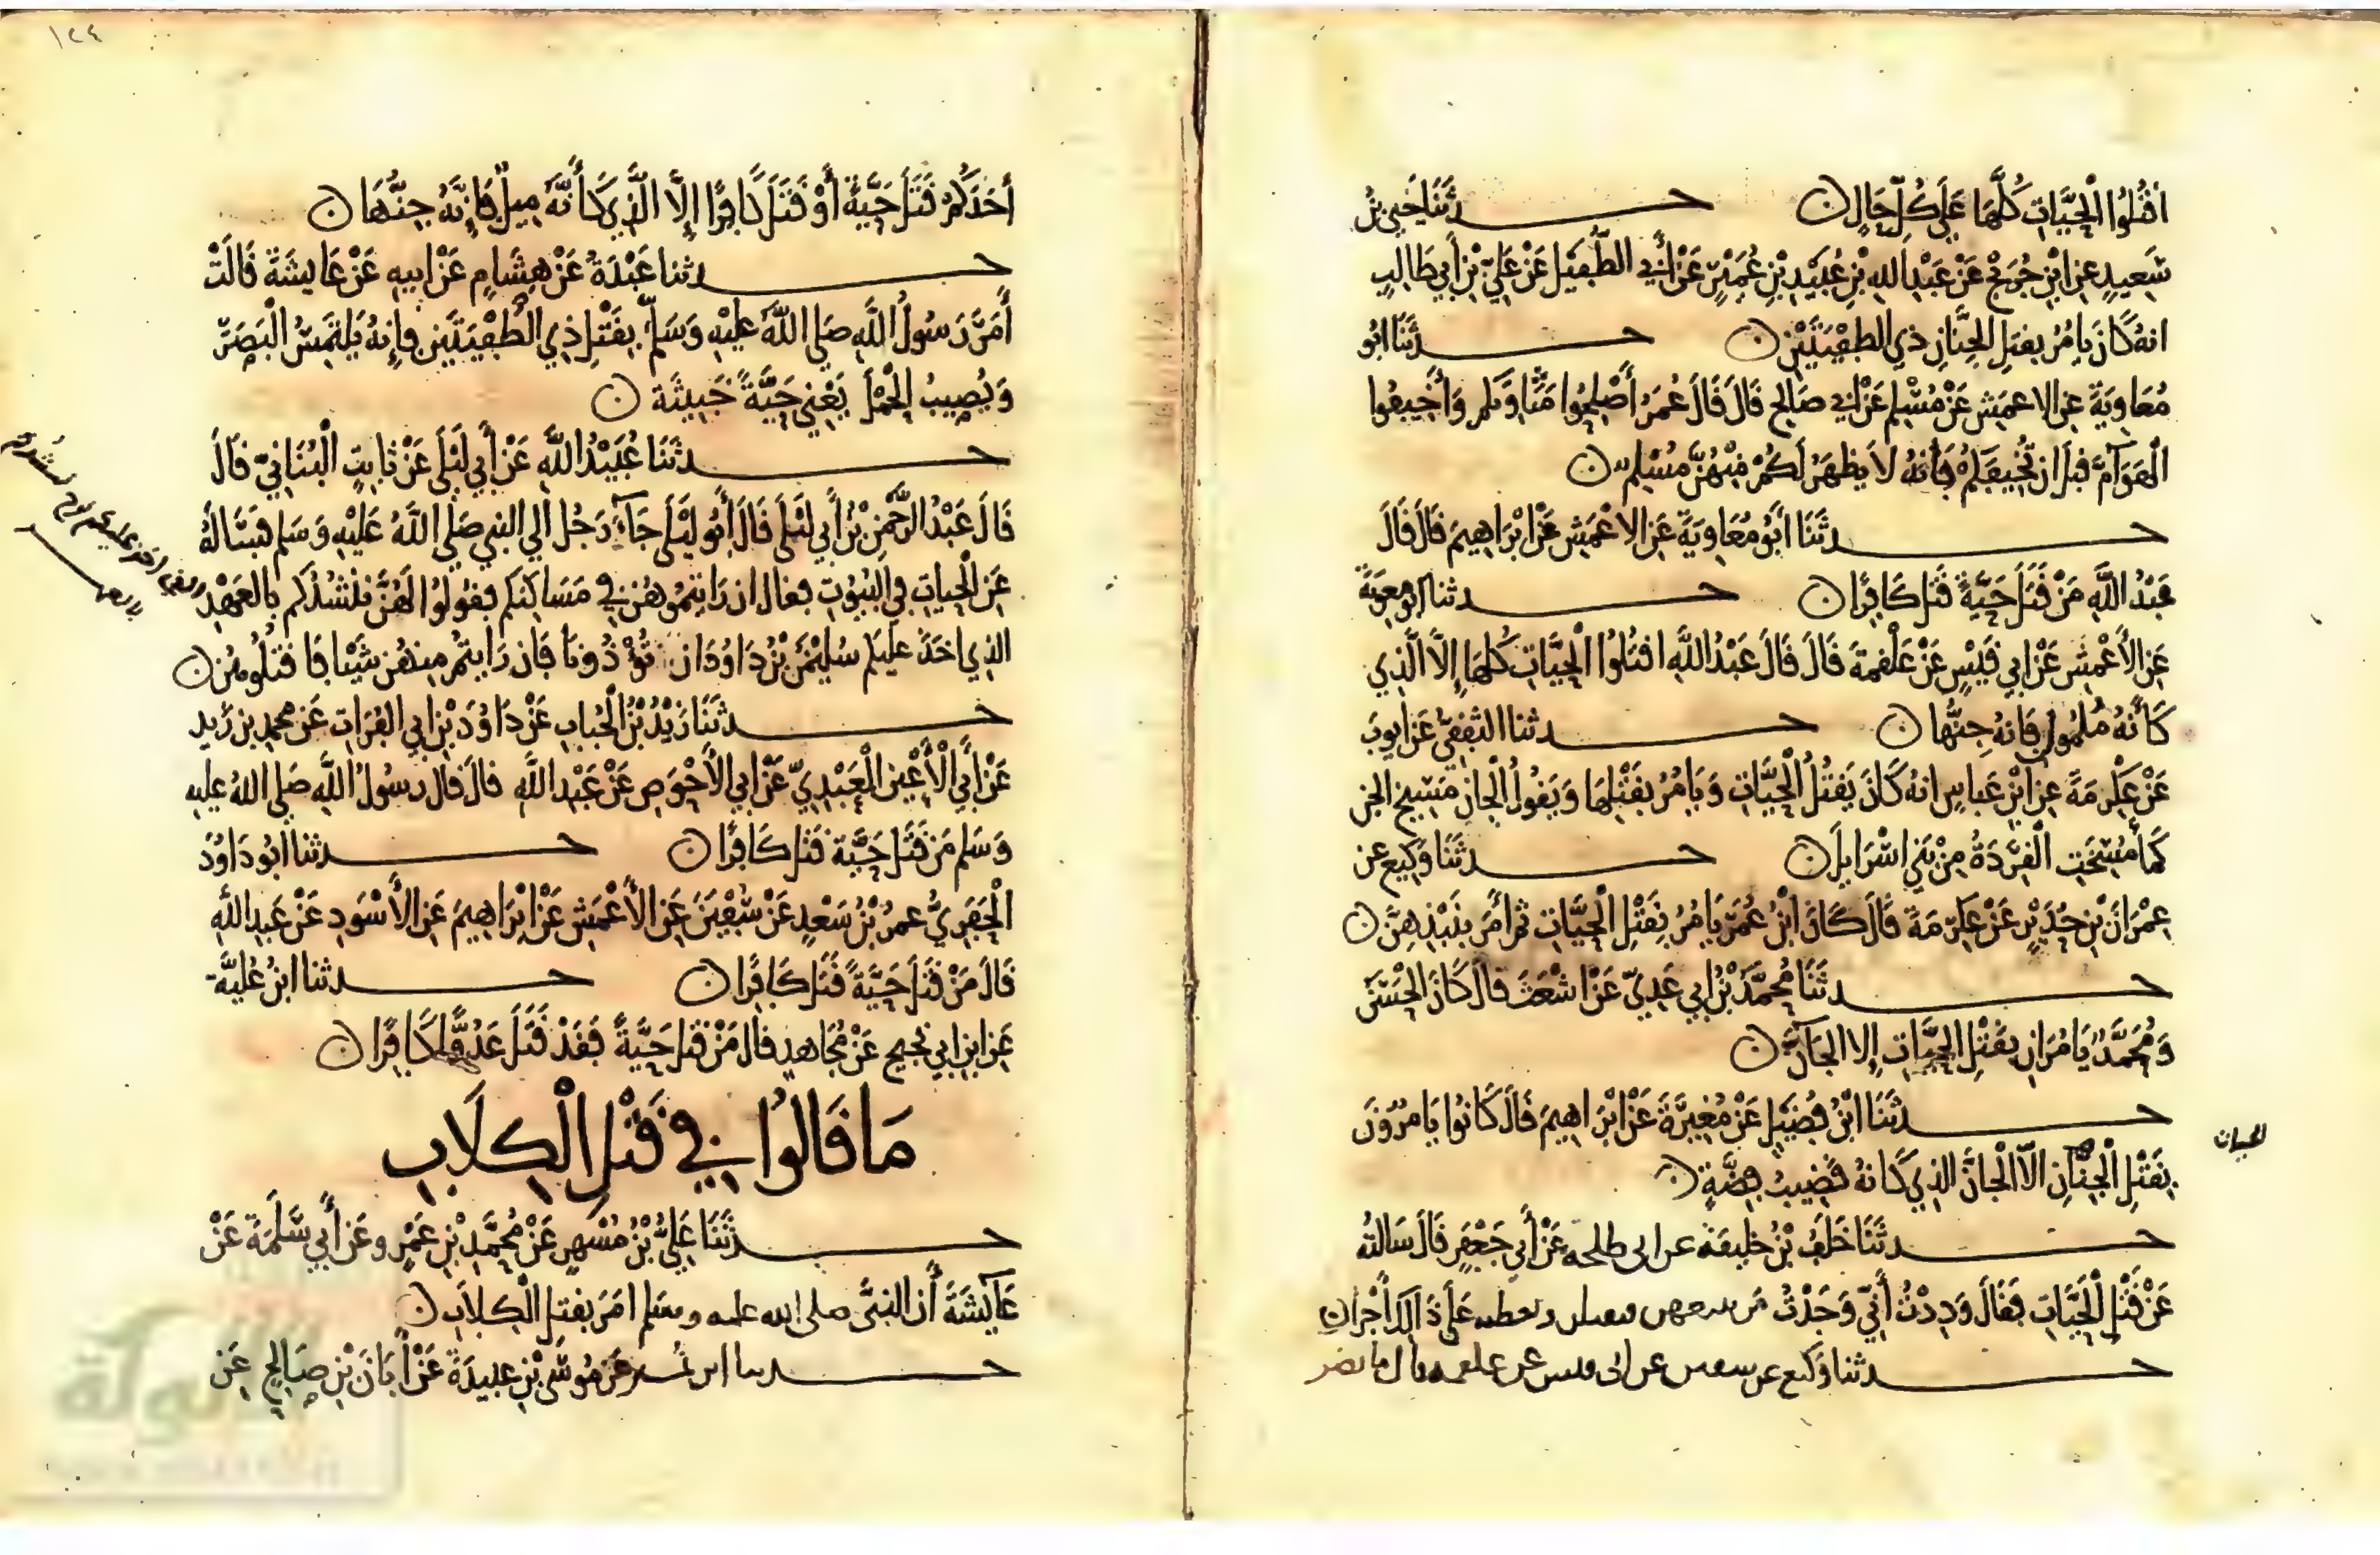 اقتُلُوا الْحَيَّاتِ كُلَّهَا عَلَى كُلِّ حَالٍ ن حــدثَنَا يَحْيَى بْنُ
سَعِيدٍ عن ابْنِ جُرَيْجٍ عَنْ عَبْدِ اللهِ بْنِ عُبَيْدِ بْنِ عُمَيْرٍ عَنْ أَبِي الطُّفَيْلِ عَنْ عَلِيِّ بْنِ أَبِي طَالِبٍ
انه كَانَ يَامُرُ بِقَتْلِ الْجِنَّانِ ذِي الطُّفْيَتَيْنِ ن حــدثَنَا ابُو
مُعَاوِيَةَ عن الاعمَشِ عَنْ مُسْلِمٍ عَنْ أَبِي صَالِحٍ قَالَ قَالَ عُمَرُ أَصْلِحُوا مَثَاوِيَكُمْ وَأَخِيفُوا
الْهَوَامَّ قَبْلَ ان تُخِيفَكُمْ فَانهُ لاَ يَظْهَرُ لَكُمْ مِنْهُنَّ مُسْلِمٌ ن
حــدثَنَا أَبُو مُعَاوِيَةَ عَنِ الاعْمَشِ عَنْ ابْرَاهِيمَ قَالَ قَالَ
عَبْدُ اللَّهِ مَنْ قَتَلَ حَيَّةً قَتَلَ كَافِرًا ن حــدثنا ابو معوية
عَنِ الأَعْمَشِ عَنْ ابي قَيْسٍ عَنْ عَلْقَمَةَ قَالَ قَالَ عَبْدُ اللَّهِ اقتُلُوا الْحَيَّاتِ كُلَّهَا إِلاَّ الَّذِي
كَأَنَّهُ مُلْمُولٌ فَانهُ جِنُّهَا ن حــدثنا الثَّقَفِيُّ عَنْ ايوبَ
عَنْ عِكْرِمَةَ عن ابْنِ عَبَّاسٍ انهُ كَانَ يَقْتُلُ الْحَيَّاتِ وَيَامُرُ بِقَتْلِهَا وَيَقُولُ الْجَانُّ مَسِيخُ الجن
كَمَا مُسِخَتِ الْقِرَدَةُ مِنْ بَنِي اسْرَايلَ ن حــدثَنَا وَكِيع عن
عِمْرَانَ بْنِ حُدَيْرٍ عَنْ عِكْرِمَةَ قَالَ كَانَ ابْنُ عُمَرَ يَامُرُ بِقَتْلِ الْحَيَّاتِ ثم أمَرَ بِنَبْذِهِنَّ ن
حــدثَنَا مُحَمَّدُ بْنُ ابي عَدِيٍّ عَنْ اشْعَثَ قَالَ كَانَ الْحَسَنُ
وَمُحَمَّدٌ يَامُرَانِ بِقَتْلِ الحَيَّاتِ إِلا الجَانَّ ن
حــدثَنَا ابْنُ فُضَيْلٍ عَنْ مُغِيرَةَ عَنْ ابْرَاهِيمَ قَالَ كَانُوا يَامُرُونَ
بِقَتْلِ الْجِنَّانِ الاَّ الْجَانَّ الذِي كَانهُ قَضِيبُ فِضَّةٍ ن
الحيات
حــدثَنَا خَلَفُ بْنُ خَلِيفَةَ عن ابى طلحه عَنْ أَبِي جَعْفَرٍ قَالَ سَالتُه
عَنْ قَتْلِ الْحَيَّاتِ فَقَالَ وَدِدْتُ أَنِّي وَجَدْتُ مَن يتبعهن فيقتلهن ونعطيه عَلَى ذَلِكَ أَجْرا ن
حــدثنا وَكيع عن سفين عن ابى قيس عن علقمه قال ما نضر
أَحَدَكُمْ قَتَلَ حَيَّةً أَوْ قَتَلَ كَافِرًا إِلاَّ الَّذِي كَأَنَّهُ مِيلٌ فَإِنَّهُ جِنُّهَا ن
حــدثنا عَبْدَةُ عَنْ هِشَامٍ عَنْ ابيهِ عَنْ عَايشَةَ قَالَتْ
أَمَرَ رَسُولُ اللَّهِ صَلى اللَّهُ عَلَيْهِ وَسَلم بِقَتْلِ ذِي الطُّفْيَتَيْنِ فإِنهُ يَلْتَمِسُ الْبَصَرَ
وَيُصِيبُ الْحَمْلَ يَعْنِي حَيَّةً خَبِيثَة ن
حــدثَنَا عُبَيْدُ اللَّهِ عَنْ أَبِي لَيْلَى عَنْ ثَابِتٍ الْبُنَانِيِّ قَالَ
قَالَ عَبْدُ الرَّحْمنِ بْنُ أَبِي لَيْلَى قَالَ أَبُو لَيْلَى جَاءَ رَجُل الى النبي صَلى اللَّهُ عَلَيْهِ وَسَلم فَسَالهُ
عَنِ الْحياتِ فِي الْبُيُوتِ فقال ان رَايتمُوهُن فِي مَسَاكنكم فقُولُوا لَهُنَّ نَنْشُدُكم بِالعَهْدِ
الذِي اخَذَ عليكم سُلَيْمَنُ بْنُ دَاوُدَ ان تُؤْذُونا فَان رَايتُمْ مِنهُن شَيْئا فَاقتُلُوهُن ن
حــدثَنَا زَيْدُ بْنُ الْحُبَابِ عَنْ دَاوُدَ بْنِ ابي الفُرَاتِ عَن محمد بن زيد
عَنْ أَبِي الأَعْيَنِ الْعَبْدِيِّ عَنْ ابي الأَحْوَصِ عَنْ عَبْدِ اللَّهِ قالَ قال رسُولُ اللَّهِ صَلى اللهُ عليه
وَسَلم مَن قَتَلَ حَيَّة قَتَلَ كَافِرًا ن حــدثنا ابُو دَاوُدَ
الْحَفَرِيُّ عمَرُ بْنُ سَعْدٍ عَنْ سُفْيَنَ عَنِ الأَعْمَشِ عَنْ ابْرَاهِيمَ عَنِ الأَسْوَدِ عَنْ عَبدِ اللَّهِ
قَالَ مَنْ قَتَلَ حَيَّةً قَتَلَ كَافِرًا ن حــدثنا ابنُ عُلَيَّةَ
عَن ابن ابي نجيح عَنْ مُجَاهِدٍ قال مَنْ قَتَلَ حَيَّةً فَقَدْ قَتَلَ عَدُوًّا كَافِرًا ن
مَا قَالُوا فِي قَتْلِ الْكِلاَبِ
حــدثَنَا عَلِيُّ بْنُ مُسْهِرٍ عَنْ مُحَمَّدِ بْنِ عَمْرٍو عَن أَبِي سَلَمَةَ عَنْ
عَايشَةَ أَن النبيَّ صلى الله عليه وسلم امَرَ بقتلِ الْكِلاَبِ ن
حــدثنا ابن نمير عَن مُوسَى بْنِ عبيدَةَ عَنْ أَبَانَ بْنِ صَالِحٍ عَنِ
١٢٤